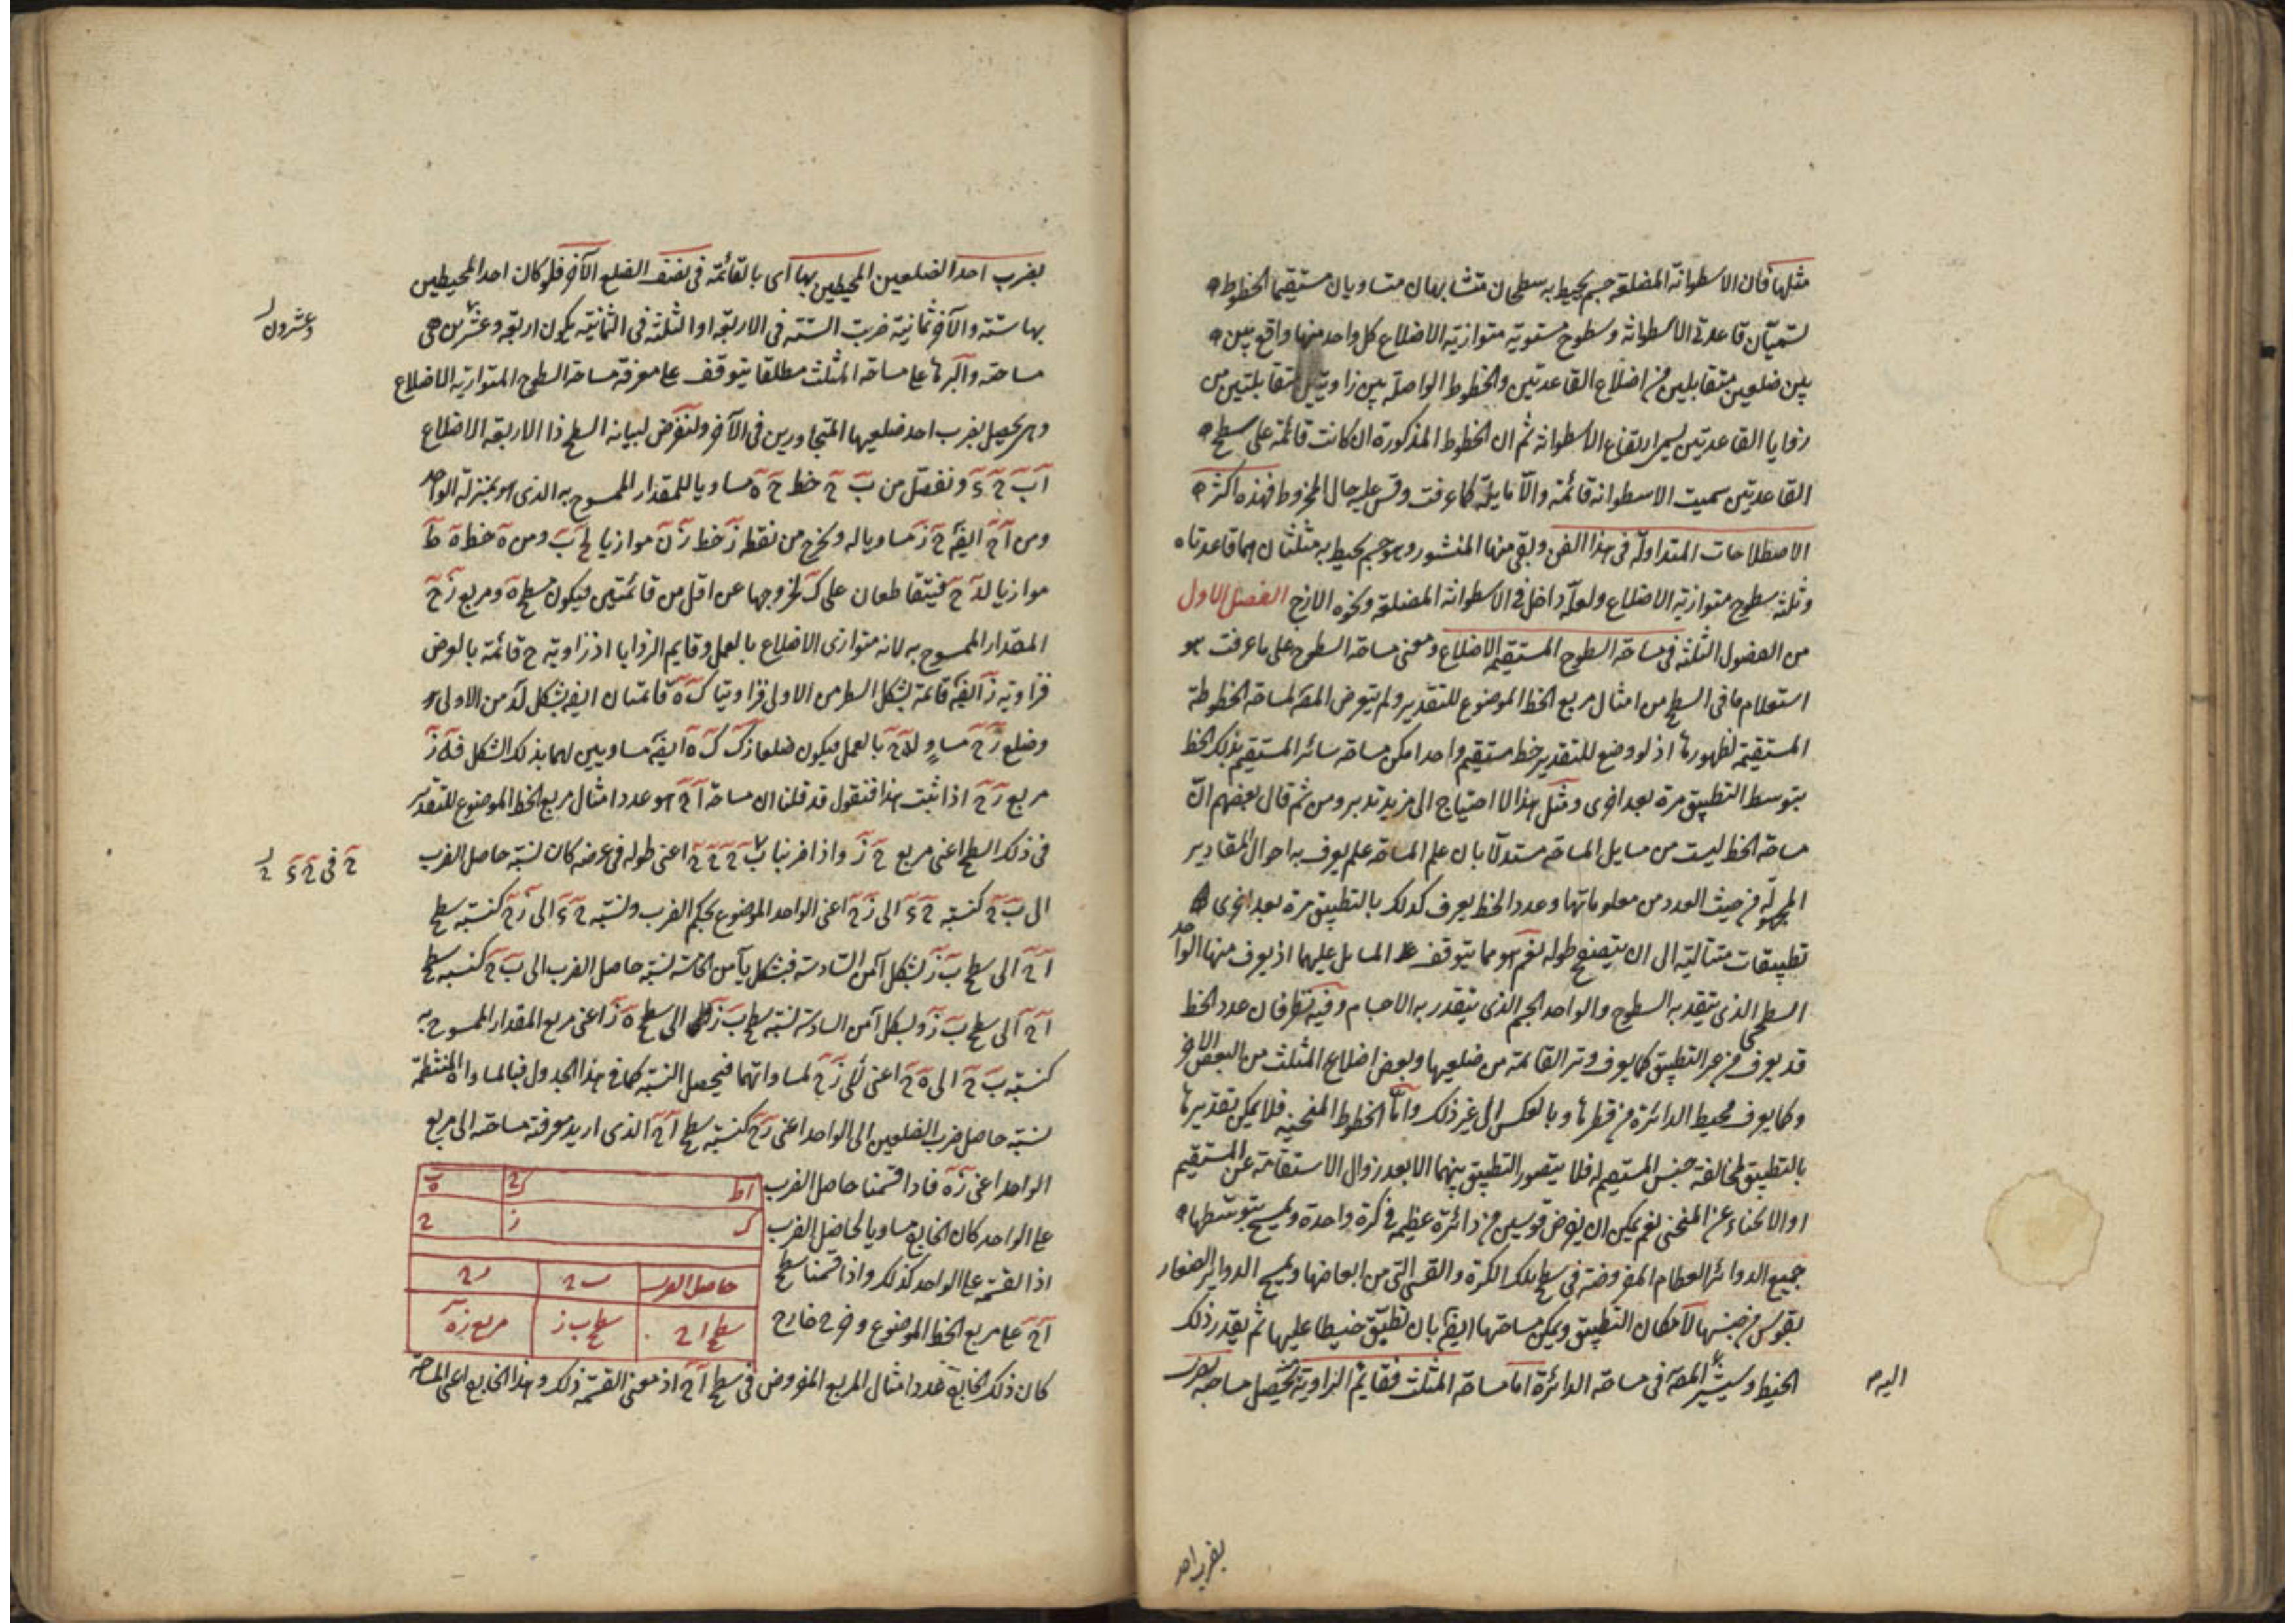 مثلها فان الاسطوانة المضلعة جسم يحيط به سطحان متشابهان متساويان مستقيما الخطوط
تسميان قاعدتي الاسطوانة وسطوح مستوية متوازية الاضلاع كل واحد منها واقع بين
بين ضلعين متقابلين من اضلاع القاعدتين والخطوط الواصلة بين زاويتين متقابلتين من
زوايا القاعدتين يسمى ارتفاع الاسطوانة ثم ان الخطوط المذكورة ان كانت قائمة على سطح
القاعدتين سميت الاسطوانة قائمة والا مايلة كما عرفت وقس عليه حال المخروط فهذه اكثر
الاصطلاحات المتداولة في هذا الفن وبقى منها المنشور وهو جسم يحيط به مثلثان هما قاعدتاه
وثلثة سطوح متوازية الاضلاع ولعله داخل في الاسطوانة المضلعة ونحوه الازج الفصل الاول
من الفصول الثلثة في مساحة السطوح المستقيمة الاضلاع ومعنى مساحة السطوح على ما عرفت هو
استعلام ما في السطح من امثال مربع الخط الموضوع للتقدير ولم يتعرض المصَ لمساحة الخطوط
المستقيمة لظهورها اذ لو وضع للتقدير خط مستقيم واحد امكن مساحة سائر المستقيم بذلك الخط
بتوسط التطبيق مرة بعد اخرى ومثل هذا لا احتياج الى مزيد تدبر ومن ثم قال بعضهم ان
مساحة الخط ليست من مسايل المساحة مستدلا بان علم المساحة علم يعرف به احوال المقادير
المجهولة من حيث العدد من معلوماتها وعدد الخط يعرف كذلك بالتطبيق مرة بعد اخرى
تطبيقات متتالية الى ان يتصفح طوله نعم هو مما يتوقف المسايل عليهما اذ يعرف منها الواحد
السطحي الذي يتقدر به السطوح والواحد الجسم الذي يتقدر به الاجسام وفيه نظر فان عدد الخط
قد يعرف من غير التطبيق كما يعرف وتر القائمة من ضلعيها وبعض اضلاع المثلث من البعض الاخر
وكما يعرف محيط الدائرة من قطرها وبالعكس الى غير ذلك واما الخطوط المنحنية فلا يمكن تقديرها
بالتطبيق لمخالفة جنس المستقيم له فلا يتصور التطبيق بينهما الا بعد زوال الاستقامة عن المستقيم
او الانحناء عن المنحنى نعم يمكن ان يفرض قوسين من دائرة عظيمة في كرة واحدة ويمسح بتوسطها
جميع الدوائر العظام المفروضة في سطح تلك الكرة والقسى التي من ابعاضها ويمسح الدوائر الصغار
بقوس من جنسها لامكان التطبيق ويمكن مساحتها ايضا بان تطبق خيطا عليها ثم يقدر ذلك
الخيط وسيشير المصَ في مساحة الدائرة اما مساحة المثلث فقايم الزاوية تحصل مساحته بضرب
اليه
بضرب احد
بضرب احد الضلعين المحيطين بها اى بالقائمة في نصف الضلع الآخر فلو كان احد المحيطين
بها ستة والآخر ثمانية ضربت الستة في الاربعة او الثلثة في الثمانية يكون اربعة وعشرين هي
وعشرون
مساحته والبرهان على مساحة المثلث مطلقا يتوقف على معرفة مساحة السطوح المتوازية الاضلاع
وهي تحصل بضرب احد ضلعيها المتجاورين في الآخر ولنفرض لبيانه السطح ذا الاربعة الاضلاع
آ ب ح د ونفصل من ب ح خط ح ه مساويا للمقدار الممسوح به الذي هو بمنزلة الواحد
ومن آ ح ايضا ح ز مساويا له ونخرج من نقطة ز خط ز ن موازيا لح ب ومن ه خط ه ط
موازيا لد ح فيتقاطعان على ك لخروجها عن اقل من قائمتين فيكون سطح ه ومربع ز ح
المقدار الممسوح به لانه متوازى الاضلاع بالعمل وقايم الزوايا اذ زاوية ح قائمة بالفرض
فزاوية ز ايضا قائمة بشكل الـ من الاولى فزاويتا ك ه قائمتان ايضا بشكل لد من الاولى
وضلع ز ح مساو له ح بالعمل فيكون ضلعا ز ك ك ه ايضا مساويين لهما بذلك الشكل فه ز
مربع ز ح اذا ثبت هذا فنقول قد قلنا ان مساحة ا ح هو عدد امثال مربع الخط الموضوع للتقدير
في ذلك السطح اعنى مربع ح ز واذا ضربنا ب ح اعنى طوله في عرضه كان نسبة حاصل الضرب
ح في ح د
الى ب ح كنسبة ح د الى ز ح اعنى الواحد الموضوع بحكم الضرب ونسبة ح د الى ز ح كنسبة سطح
ا ح الى سطح ب ز بشكل آ من السادسة فبشكل يا من الخامسة نسبة حاصل الضرب الى ب ح كنسبة سطح
ا ح الى سطح ب ز وبشكل آ من السادسة نسبة سطح ب ز الى سطح ه ز اعنى مربع المقدار الممسوح به
كنسبة ب ح الى ه ح اعنى الى ز ح لمساواتهما فيحصل النسبة كما في هذا الجدول فبالمساواة المنتظمة
نسبة حاصل ضرب الضلعين الى الواحد اعنى ز ح كنسبة سطح ا ح الذي اريد معرفة مساحته الى مربع
الواحد اعنى ز ه فاذا قسمنا حاصل الضرب
على الواحد كان الخارج مساويا لحاصل الضرب
اذ القسمة على الواحد كذلك واذا قسمنا سطح
ا ح على مربع الخط الموضوع وخرج خارج
كان ذلك الخارج عدد امثال المربع المفروض في سطح ا ح اذ معنى القسمة ذلك وهذا الخارج اعنى المساحة
حاصل الضرب ب ح ز ح
سطح ا ح سطح ب ز مربع ز ه